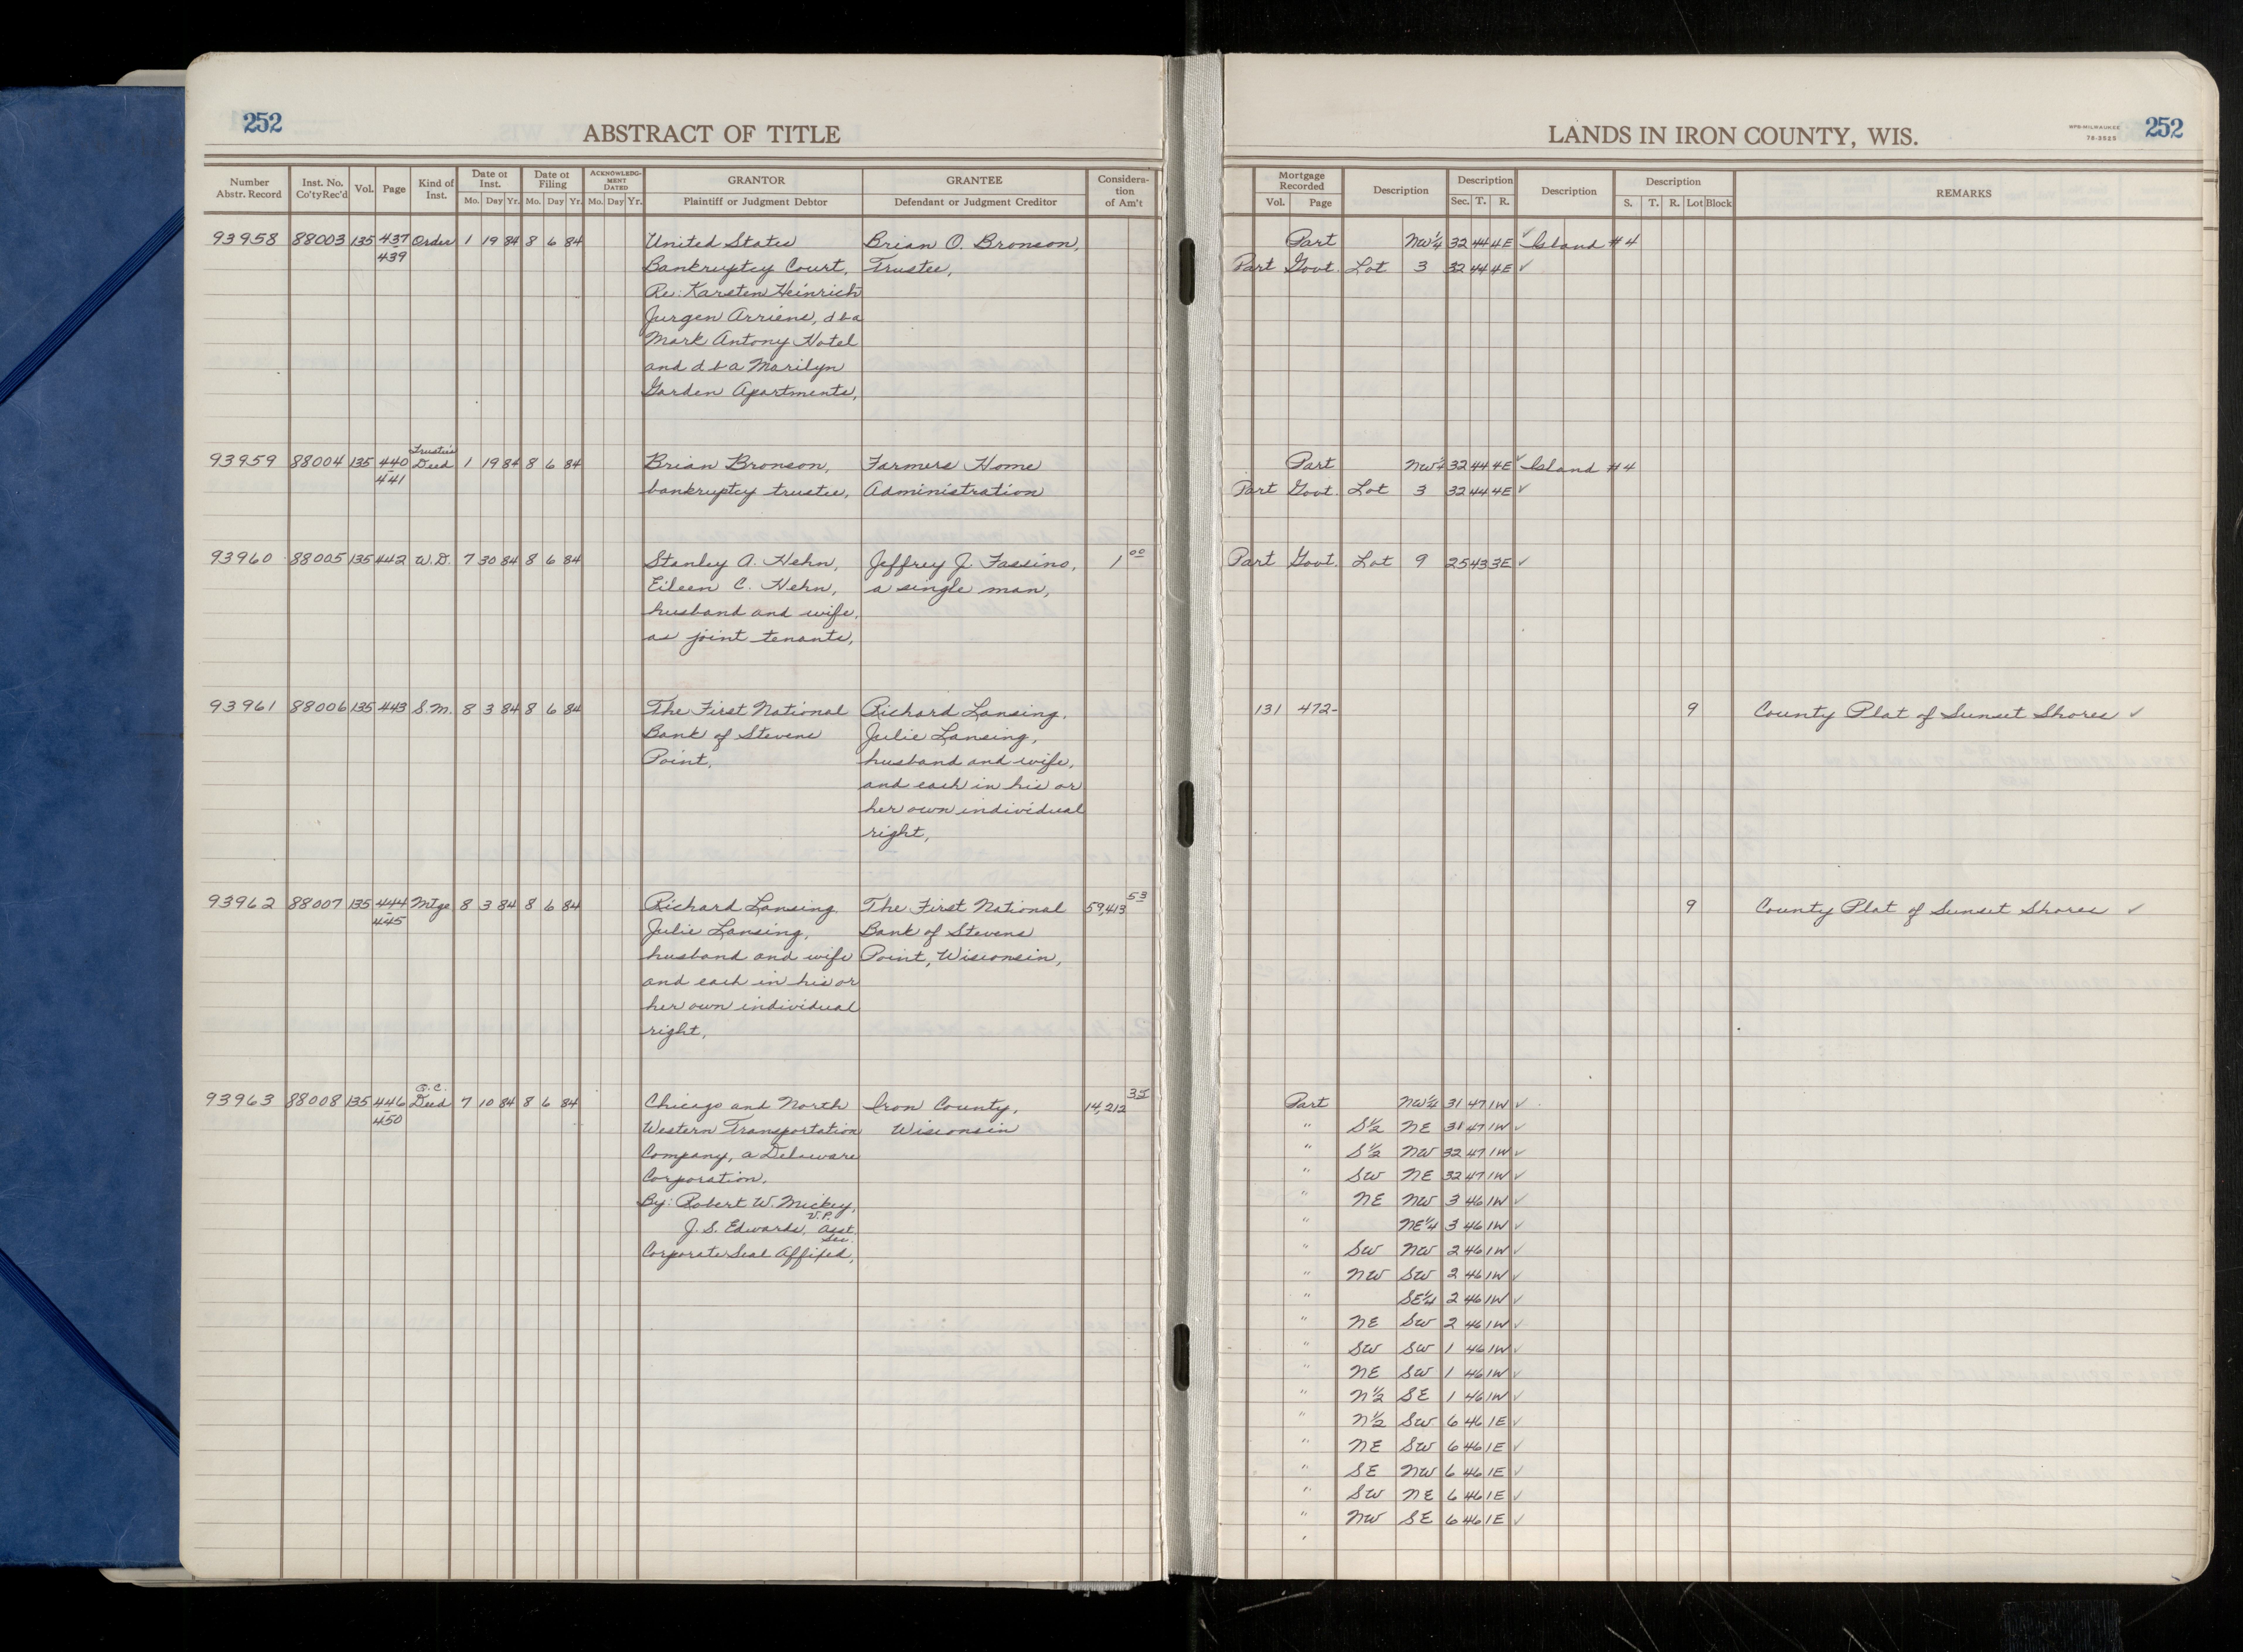 252
ABSTRACT OF TITLE
Number Abstr. Record Inst. No. Co'tyRec'd Vol. Page Kind of Inst. Date of Inst. Mo. Day Yr. Date of Filing Mo. Day Yr. ACKNOWLEDG-MENT DATED Mo. Day Yr. GRANTOR Plaintiff or Judgment Debtor GRANTEE Defendant or Judgment Creditor Considera-tion of Am't
93958 88003 135 437 Order 1 19 84 8 6 84 United States Brian O. Bronson,
439 Bankruptcy Court, Trustee,
Re: Karsten Heinrich
Jurgen Arriens, dba
Mark Antony Hotel
and dba Marilyn
Garden Apartments,
Trustee's
93959 88004 135 440 Deed 1 19 84 8 6 84 Brian Bronson, Farmers Home
441 bankruptcy trustee, Administration
93960 88005 135 442 W.D. 7 30 84 8 6 84 Stanley A. Hehn, Jeffrey J. Fassino, 1 00
Eileen C. Hehn, a single man,
husband and wife,
as joint tenants,
93961 88006 135 443 S.M. 8 3 84 8 6 84 The First National Richard Lansing,
Bank of Stevens Julie Lansing,
Point, husband and wife,
and each in his or
her own individual
right,
93962 88007 135 444 Mtge 8 3 84 8 6 84 Richard Lansing The First National 59,413 53
445 Julie Lansing, Bank of Stevens
husband and wife Point, Wisconsin,
and each in his or
her own individual
right,
Q.C.
93963 88008 135 446 Deed 7 10 84 8 6 84 Chicago and North Iron County, 14,212 35
450 Western Transportation Wisconsin
Company, a Delaware
Corporation,
By: Robert W. Mickey,
V.P.
J.S. Edwards, Asst.
Sec.
Corporate Seal Affixed,
LANDS IN IRON COUNTY, WIS.
WPB-MILWAUKEE
78-3525
252
Mortgage Recorded Vol. Page Description Description Sec. T. R. Description Description S. T. R. Lot Block REMARKS
Part NW¼ 32 44 4E ✓ Island #4
Part Govt. Lot 3 32 44 4E ✓
Part NW¼ 32 44 4E ✓ Island #4
Part Govt. Lot 3 32 44 4E ✓
Part Govt. Lot 9 25 43 3E ✓
131 472- 9 County Plat of Sunset Shores ✓
9 County Plat of Sunset Shores ✓
Part NW¼ 31 47 1W ✓
" S½ NE 31 47 1W ✓
" S½ NW 32 47 1W ✓
" SW NE 32 47 1W ✓
" NE NW 3 46 1W ✓
" NE¼ 3 46 1W ✓
" SW NW 2 46 1W ✓
" NW SW 2 46 1W ✓
" SE¼ 2 46 1W ✓
" NE SW 2 46 1W ✓
" SW SW 1 46 1W ✓
" NE SW 1 46 1W ✓
" N½ SE 1 46 1W ✓
" N½ SW 6 46 1E ✓
" NE SW 6 46 1E ✓
" SE NW 6 46 1E ✓
" SW NE 6 46 1E ✓
" NW SE 6 46 1E ✓